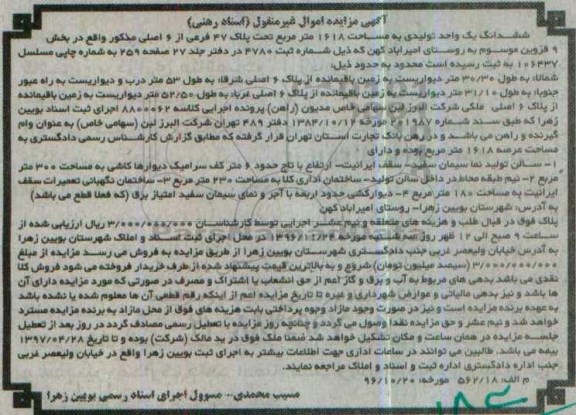 آگهی مزایده اموال غیرمنقول (اسناد رهنی)
ششدانگ یک واحد تولیدی به مساحت ۱۶۱۸ متر مربع تحت پلاک ۴۷ فرعی از ۶ اصلی مذکور واقع در بخش
۹ قزوین موسوم به روستای امیرآباد کهن که ذیل شماره ثبت ۴۷۸۰ در دفتر جلد ۲۷ صفحه ۲۵۹ به شماره چاپی مسلسل
۱۰۶۴۳۷ به ثبت رسیده است محدود به حدود ذیل:
شمالا: به طول ۳۰/۳۰ متر دیواریست به زمین باقیمانده از پلاک ۶ اصلی شرقا: به طول ۵۳ متر درب و دیواریست به راه عبور
جنوبا: به طول ۳۱/۱۰ متر دیواریست به زمین باقیمانده از پلاک ۶ اصلی غربا: به طول ۵۲/۵۰ متر دیواریست به زمین باقیمانده
از پلاک ۶ اصلی. ملکی شرکت البرز لین (سهامی خاص مدیون (راهن) پرونده اجرایی کلاسه ۸۸۰۰۰۶۲ اجرای ثبت اسناد بویین
زهرا که طبق سند شماره ۲۰۱۹۸۷ مورخه ۱۳۸۴/۱۰/۱۲ دفتر ۴۸۹ تهران شرکت البرز لین (سهامی خاص) به عنوان وام
گیرنده و راهن می باشد و در رهن بانک تجارت استان تهران قرار گرفته که مطابق گزارش کارشناس رسمی دادگستری به
مساحت عرصه ۱۶۱۸ متر مربع بوده و دارای
۱- سالن تولید نما سیمان سفید – سقف ایرانیت– ارتفاع با تاج حدود ۶ متر کف سرامیک دیوارها کاشی به مساحت ۳۰۰ متر
مربع ۲- نیم طبقه مجاهد در داخل سالن تولید– ساختمان اداری کلا به مساحت ۲۳۰ متر مربع ۳- ساختمان نگهبانی تعمیرات سقف
ایرانیت به مساحت ۱۸۰ متر مربع ۴- دیوارکشی حدود اربعه با آجر و نمای سیمان سفید امتیاز برق (که فعلا قطع می باشد)
به آدرس: شهرستان بویین زهرا– روستای امیرآباد کهن
پلاک فوق در قبال طلب و هزینه های متعلقه و نیم عشر اجرایی توسط کارشناسان ۳/۰۰۰/۰۰۰/۰۰۰ ریال ارزیابی شده از
ساعت ۹ صبح الی ۱۲ ظهر روز سه شنبه مورخه در محل اجرای ثبت اسناد و املاک شهرستان بویین زهرا
به آدرس خیابان ولیعصر غربی جنب دادگستری شهرستان بویین زهرا از طریق مزایده به فروش می رسد مزایده از مبلغ
۳/۰۰۰/۰۰۰/۰۰۰ (سیصد میلیون تومان) شروع و به بالاترین قیمت پیشنهاد شده از طرف خریدار فروخته می شود فروش کلا
نقدی می باشد بدهی های مربوط به آب و برق و گاز اعم از حق انشعاب یا اشتراک و مصرف در صورتی که مورد مزایده دارای آن
ها باشد و نیز بدهی مالیاتی و عوارض شهرداری و غیره تا تاریخ مزایده اعم از اینکه رقم قطعی آن ها معلوم شده یا نشده باشد
به عهده برنده مزایده است و نیز در صورت وجود مازاد وجوه پرداختی بابت هزینه های فوق از محل مازاد به برنده مزایده مسترد
خواهد شد و نیم عشر و حق مزایده نقدا وصول می گردد و چنانچه روز مزایده با تعطیل رسمی مصادف گردد در روز بعد از تعطیل
جلسه مزایده در همان ساعت و مکان تشکیل خواهد شد ضمنا ملک فوق در ید مالک (شرکت) بوده و تا تاریخ ۱۳۹۷/۰۴/۲۸
بیمه می باشد. طالبین می توانند در ساعات اداری جهت اطلاعات بیشتر به اجرای ثبت بویین زهرا واقع در خیابان ولیعصر غربی
جنب اداره دادگستری اداره ثبت و اسناد و املاک مراجعه نمایند.
م الف: ۵۶۷/۱۸ مورخه: ۹۶/۱۰/۲۰
مسیب محمدی – مسوول اجرای اسناد رسمی بویین زهرا